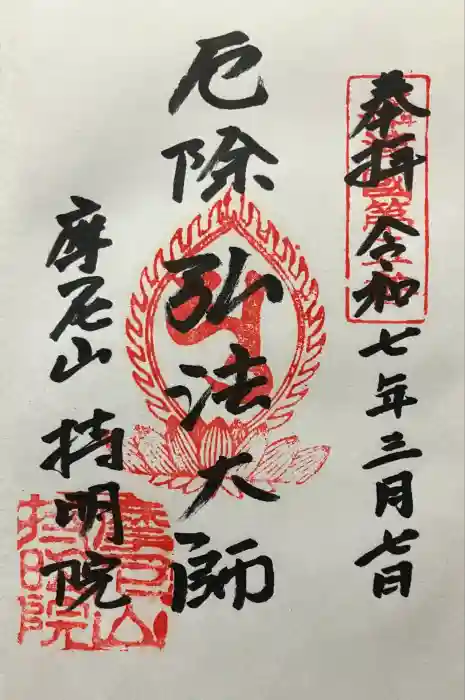 奉拝 令和七年三月七日
厄除 弘法大師
摩尼山 持明院
摩尼山
持明院